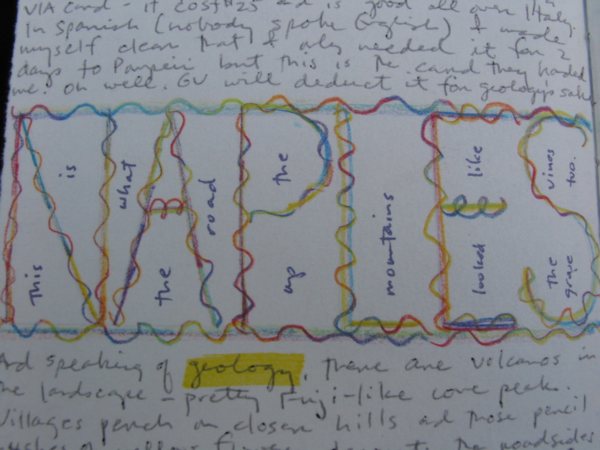 VIA card - it cost #25 and is good all over Italy.
In Spanish (nobody spoke English) I made
myself clear that I only needed it for 2
days to Pompeii but this is the card they handed
me. Oh well. GV will deduct it for geology's sake
NAPLES
This is
what
the road
up the
mountains
looked like
the grape
vines too.
And speaking of geology, there are volcanos in
the landscape - pretty Fuji-like cone peaks.
Villages perch on closer hills and those pencil
of yellow the roadsides